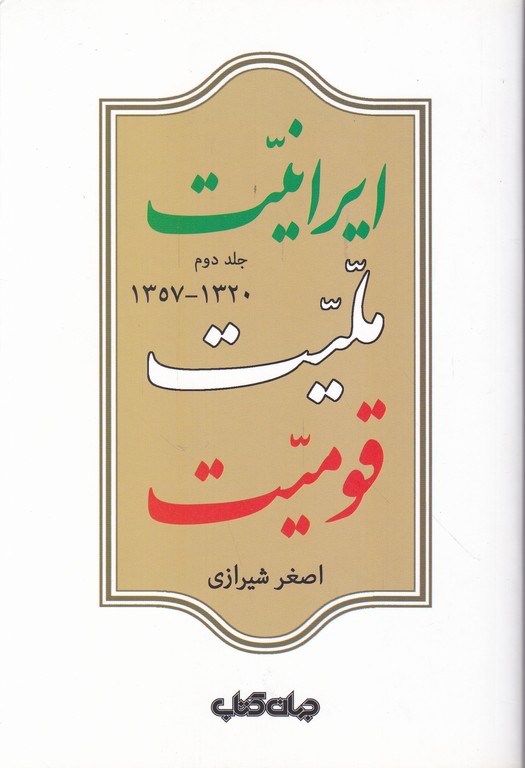 ایرانیّت
جلد دوم
۱۳۲۰-۱۳۵۷
ملّیّت
قومیّت
اصغر شیرازی
جهان کتاب